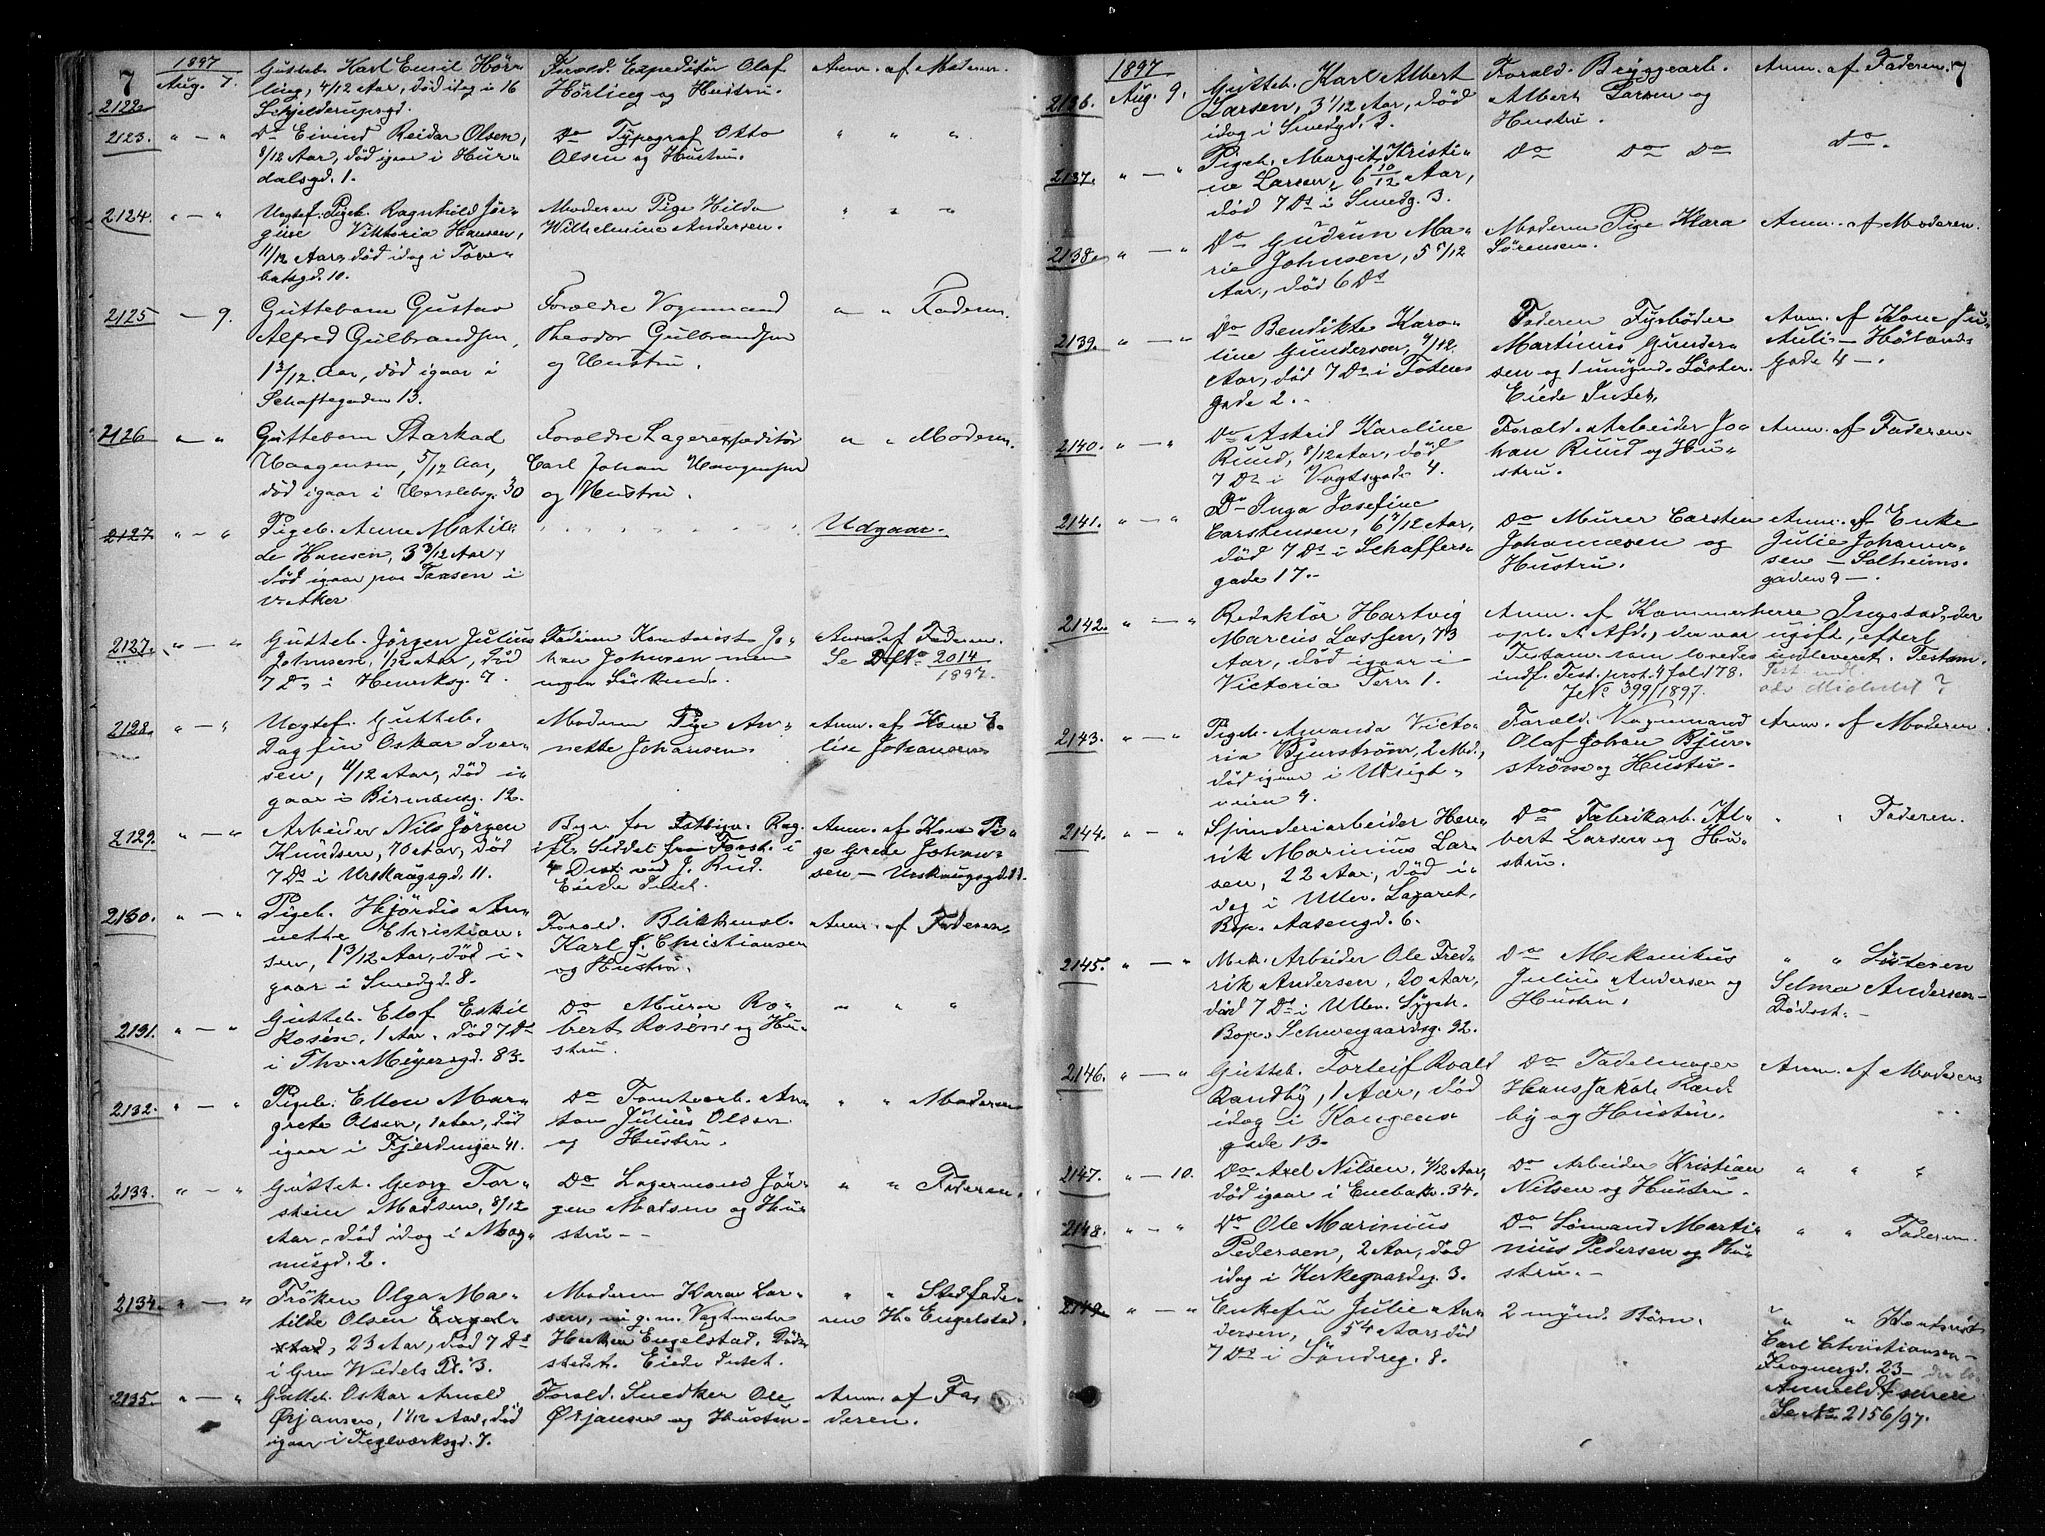 7
1897
2122 Aug. 7. Gutteb. Karl Emil Hör-
ling, 4/12 Aar, död idag i 16
Schjelderupsgd.
Foræld. Expeditör Olaf
Hörling og Hustru.
Anm. af Moderen.
2123. " — " Do Eivind Reidar Olsen,
8/12 Aar, död igaar i Hur-
dalsgd. 1.
Do Typograf Otto
Olsen og Hustru.
" " "
2124. " — " Uægtef. Pigeb. Ragnhild Jör-
gine Viktoria Hansen,
11/12 Aar, död idag i Tove-
batsgd. 10.
Moderen Pige Hilda
Wilhelmine Andersen.
" " "
2125 — 9. Guttebarn Gustav
Alfred Gulbrandsen,
1 3/12 Aar, död igaar i
Schaftegaden 13.
Forældre Vognmand
Theodor Gulbrandsen
og Hustru.
" " Faderen.
2126 " " Guttebarn Starkad
Haagensen, 5/12 Aar,
död igaar i Herslebsg. 30
Forældre Lagerexpeditör
Carl Johan Haagensen
og Hustru.
" " Moderen.
2127 " — " Pigeb. Anna Matil-
de Hansen, 3 3/12 Aar,
död igaar paa Taasen i
V. Aker
Udgaar.
2127. " — " Gutteb. Jörgen Julius
Johnsen, 1/12 Aar, död
7 Ds i Henriksg. 7.
Faderen Kontorist Jo-
han Johnsen men
ingen Söskende.
Anm. af Faderen.
Se No 2014/1897.
2128. " — " Uægtef. Gutteb.
Dagfin Oskar Iver-
sen, 11/12 Aar, död i-
gaar i Birmensg. 12.
Moderen Pige An-
nette Johansen.
Anm. af Kone E-
lise Johansen.
2129. " — " Arbeider Nils Jörgen
Knudsen, 70 Aar, död
7 Ds i Urskaugsgd. 11.
4 Dist. ved J. Rud.
Eiede Intet.
Anm. af Kone In-
ge Grete Johan-
sen — Urskaugsgd. 11.
2130. " — " Pigeb. Hjördis An-
nette Christian-
sen, 1 3/12 Aar, död i-
gaar i Smedgd. 8.
Foræld. Blikkensl.
Karl J. Christiansen
og Hustru.
Anm. af Faderen.
2131. " — " Gutteb. Elof Eskil
Rosén, 1 Aar, död 7 Ds
i Thv. Meyersgd. 83.
Do Murer Ro-
bert Rosén og Hu-
stru.
" " "
2132. " — " Pigeb. Ellen Mar-
grete Olsen, 1 Aar, död
igaar i Fjerdingen 41.
Do Tomtearb. An-
ton Julius Olsen
og Hustru.
" " Moderen
2133. " — " Gutteb. Georg Tor-
stein Madsen, 8/12
Aar, död idag i Mag-
nusgd. 2.
Do Lagermand Jör-
gen Madsen og Hu-
stru —
" " Faderen.
2134. " — " Fröken Olga Ma-
tilde Olsen Engel-
stad, 23 Aar, död 7 Ds
i Grev Wedels Pl. 3.
Moderen Karen Lar-
sen, nu g. m. Vagtmester
Engelstad, Döds-
stedet. Eiede Intet.
" " Stedfade-
ren H. Engelstad.
2135. " — " Gutteb. Oskar Arnold
Örjansen, 1 1/12 Aar, död
igaar i Teglværksgd. 7.
Foræld. Snedker Ole
Örjansen og Hustru.
Anm. af Fa-
deren.
7
1897
2136. Aug. 9. Gutteb. Karl Albert
Larsen, 3 1/12 Aar, död
idag i Smedgd. 3.
Foræld. Bryggearb.
Albert Larsen og
Hustru.
Anm. af Faderen.
2137. " — " Pigeb. Margit Kristi-
ne Larsen, 6 10/12 Aar,
död 7 Ds i Smedg. 3.
Do Do Do
Do.
2138. " — " Do Gudrun Ma-
rie Johnsen, 5 5/12
Aar, död 6 Ds
Moderen Pige Klara
Sörensen.
Anm. af Moderen.
2139. " — " Do Bendikte Karo-
line Gundersen, 9/12
Aar, död 7 Ds i Totens
gade 2.
Faderen Fyrböder
Martinius Gunder-
sen og 1 umynd. Söster.
Eiede Intet.
Anm. af Kone Ju-
— Hölands
Gade 4 —.
2140. " — " Do Astrid Karoline
Ruud, 8/12 Aar, död
7 Ds i Vogtsgade 4.
Foræld. Arbeider Jo-
han Ruud og Hu-
stru.
Anm. af Faderen.
2141. " — " Do Inga Josefine
Carstensen, 6 7/12 Aar,
död 7 Ds i Schaffers-
gade 17.
Do Murer Carsten
Johannesen og
Hustru.
Anm. af Enke
Julie Johanne-
sen — Solheims-
gaden 9 —.
2142. " — " Redaktör Hartvig
Marcus Lassen, 73
Aar, död igaar i
Victoria Terr. 1.
Anm. af Kammerherre Ingstad, der
opl. at Afd., der var ugift, efterl.
Testam. som lovedes indleveret. Testam.
indf. Test. prot. 4 fol 178.
J No 399/1897.
2143. " — " Pigeb. Amanda Victo-
ria Bjurström, 2 Md.,
död igaar i Utsigt-
veien 4.
Foræld. Vognmand
Olaf Johan Bjur-
ström og Hustru.
Anm. af Moderen.
2144. " — " Spinderiarbeider Hen-
rik Marinius Lar-
sen, 22 Aar, död i-
dag i Ullev. Lazaret,
Bop. Aasengd. 6.
Do Fabrikarb. Al-
bert Larsen og Hu-
stru.
" " Faderen.
2145. " — " Mek. Arbeider Ole Fred-
rik Andersen, 20 Aar,
död 7 Ds i Ullev. Sygeh.
Bop. Schweigaardsg. 92.
Do Mekanikus
Julius Andersen og
Hustru.
" " Sösteren
Selma Andersen —
Dödsst. —
2146. " — " Gutteb. Torleif Roald
Randby, 1 Aar, död
idag i Kongens-
gade 13.
Do Sadelmager
Hans Jakob Rand-
by og Hustru.
Anm. af Moderen
2147. " — 10. Do Axel Nilsen, 4/12 Aar,
död igaar i Enebakv. 34.
Do Arbeider Kristian
Nilsen og Hustru.
" " "
2148. " — " Do Ole Marinius
Pedersen, 2 Aar, död
idag i Herkegaardsg. 3.
Do Sömand Marti-
nius Pedersen og Hu-
stru. —
" " Faderen.
2149. " — " Enkefru Julie An-
dersen, 54 Aar, död
7 Ds i Söndreg. 8.
2 mynd. Börn.
" " Kontorist
Carl Christiansen —
Frognergd. 23 —
Anmeldt senere
Se No 2156/97.